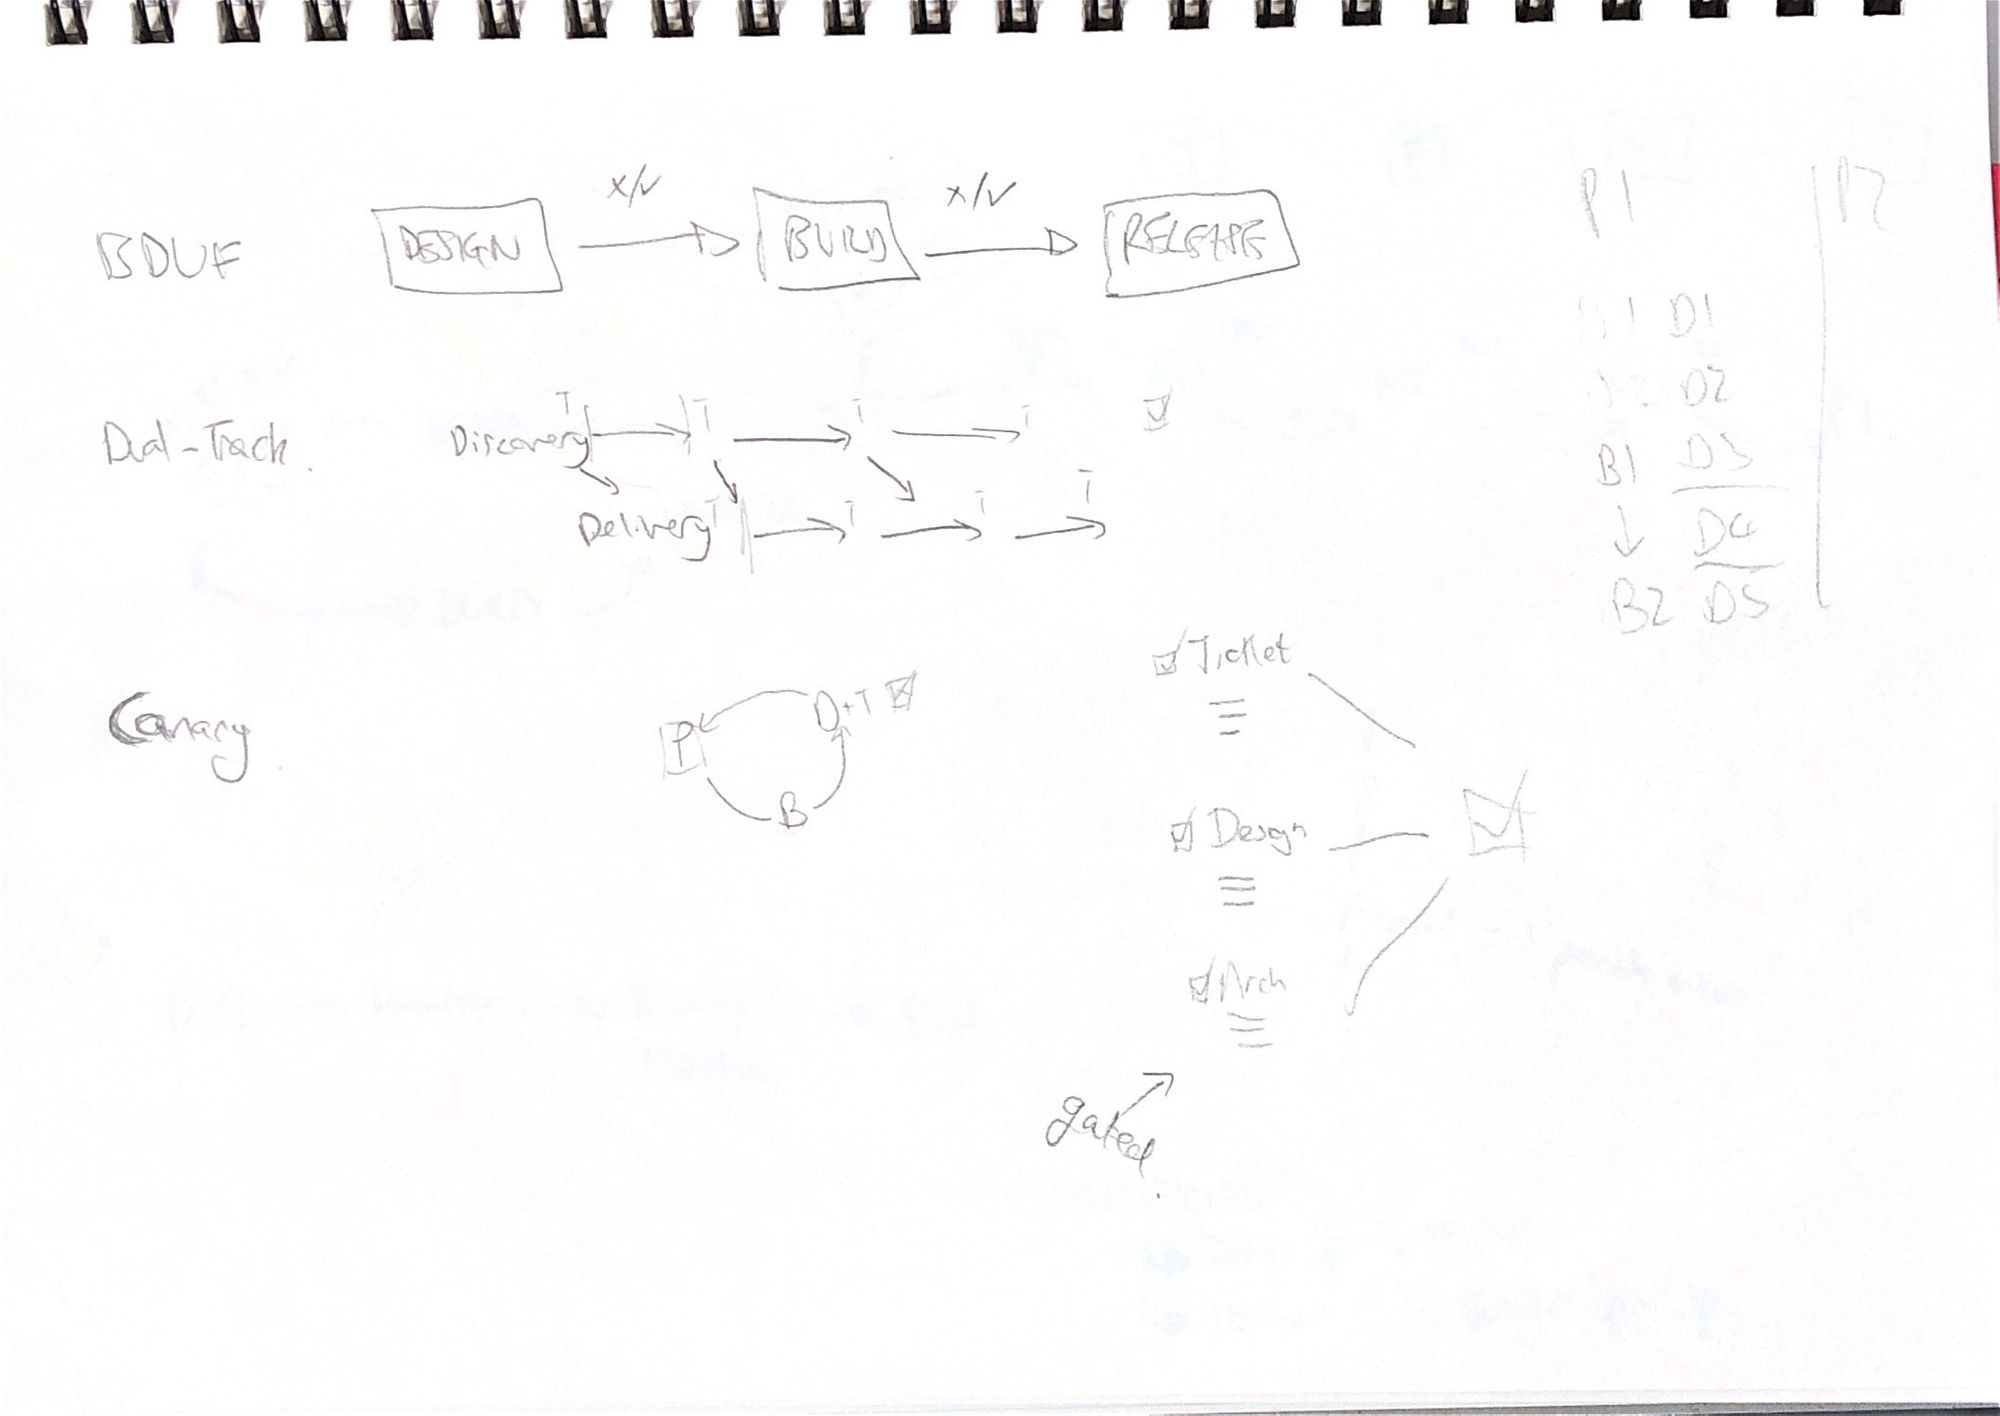 BDUF
DESIGN
x/✓
BUILD
x/✓
RELEASE
P1
P2
D1
D2
B1 D3
↓ D4
B2 D5
Dual-Track.
Discovery
T
T
T
T
Delivery
T
T
T
T
Canary
P
D+T
B
Ticket
Design
Arch
gated.